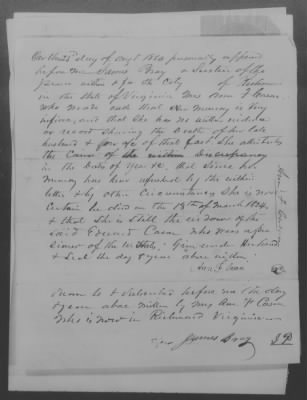 day of Augt 1850 personally appeared
before me James Gray a Justice of the
peace within & for the City of Richmond
in the State of Virginia Mrs Ann F Cason
who made oath that her memory is very
infirm, and that she has no written evidence
or record shewing the death of her late
husband & of that fact. She attributes
the Cause of the within discrepancy
in the date of death, that since her
memory has been refreshed by the within
letter & by other Circumstances She is now
certain he died on the 18th of March 1824
& that She is still the widow of the
said Edward Cason who was a pensioner
of the U States. Given under my hand
& Seal the day & year above written
Ann F Cason
Sworn to & subscribed before me the day
& year above written by Mrs Ann F Cason
who is now in Richmond Virginia
James Gray J P